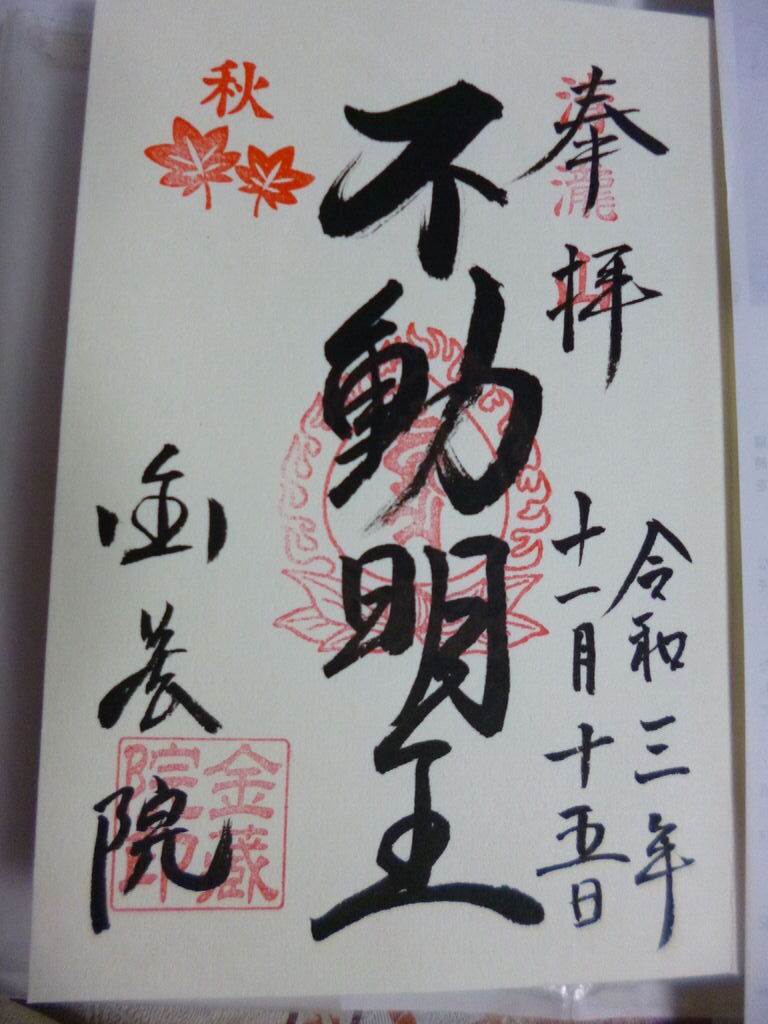 奉拝
令和三年
十一月十五日
不動明王
秋
金蔵院
金蔵
院印